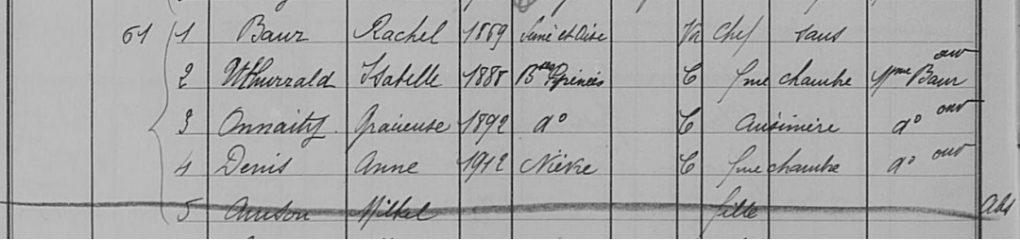 61 1 Baur Rachel 1869 Seine et Oise Va Chef sans
2 Isabelle 1888 Bses Pyrénées C fme chambre Mme Baur ouv
3 Gracieuse 1892 do C Cuisinière do ouv
4 Denis Anne 1912 Nièvre C fme chambre do ouv
5 fille Abs